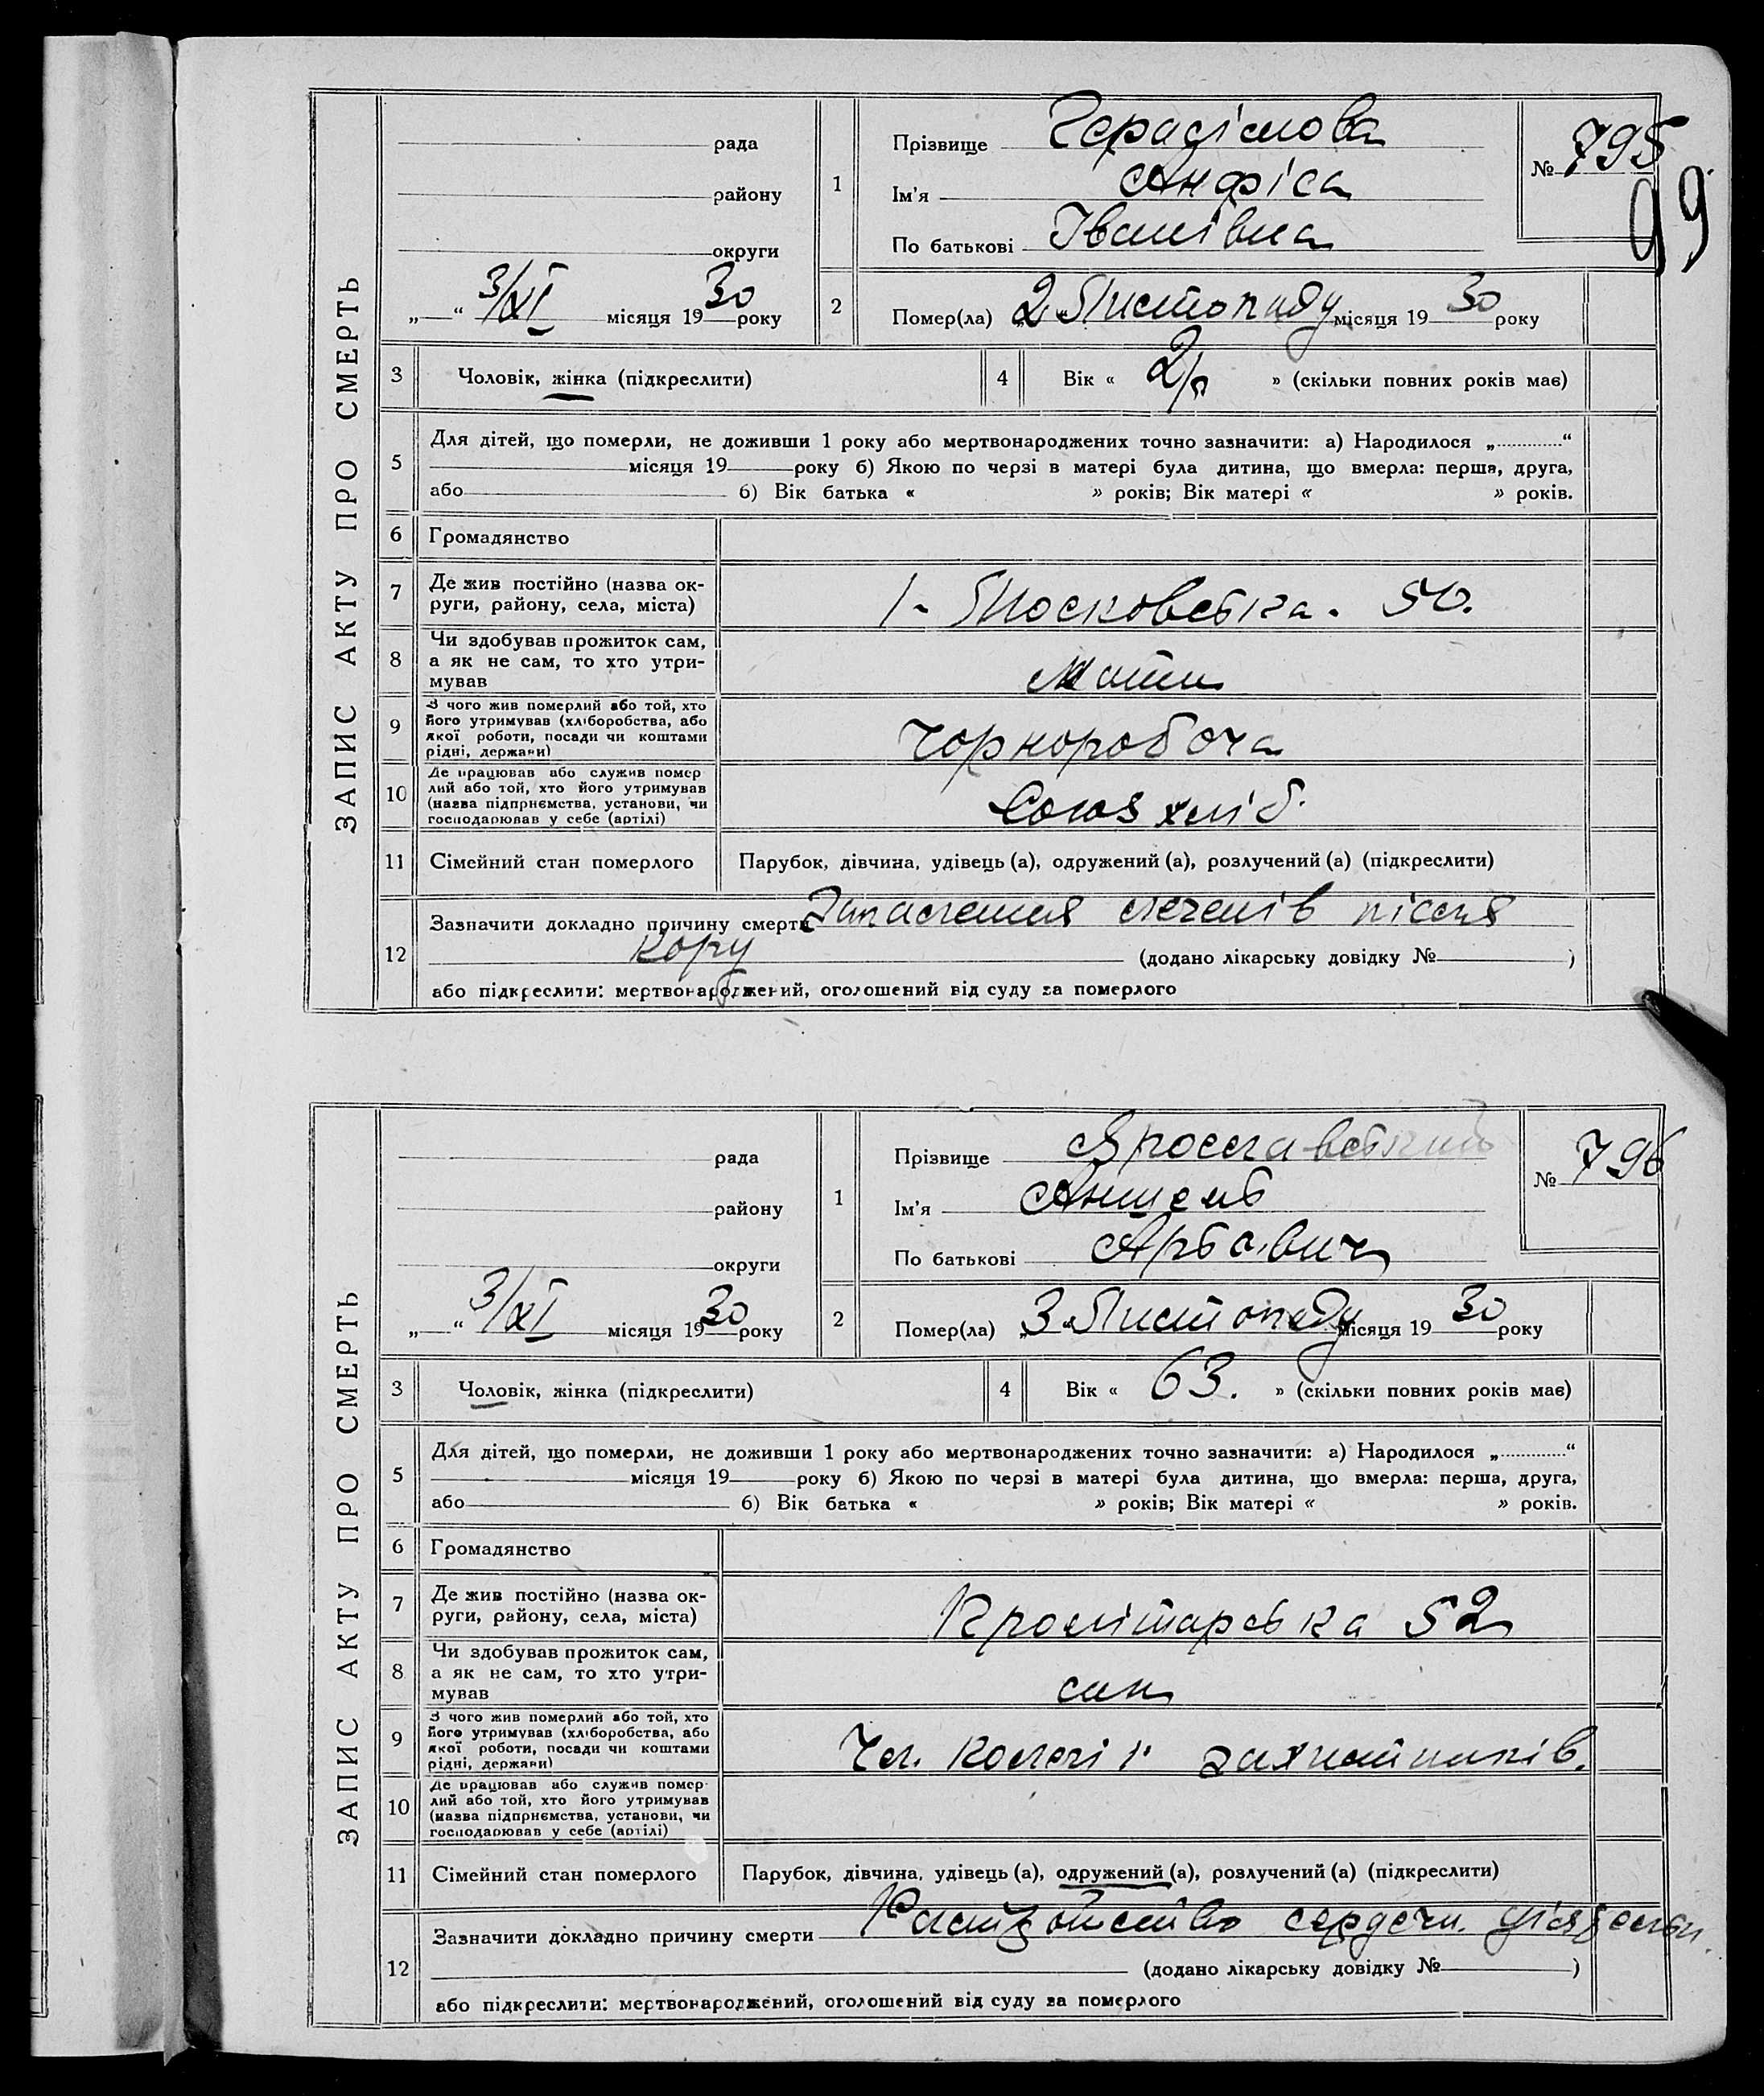 ЗАПИС АКТУ ПРО СМЕРТЬ
рада
району
округи
„ “ 3/XI місяця 1930 року
1
Прізвище Герасімова
Ім'я Анфіса
По батькові Іванівна
№ 795
99
2
Помер(ла) „2“ Листопаду місяця 1930 року
3
Чоловік, жінка (підкреслити)
4
Вік « 2 р » (скільки повних років має)
5
Для дітей, що померли, не доживши 1 року або мертвонароджених точно зазначити: а) Народилося „ “
місяця 19 року б) Якою по черзі в матері була дитина, що вмерла: перша, друга,
або б) Вік батька « » років; Вік матері « » років.
6
Громадянство
7
Де жив постійно (назва ок-
руги, району, села, міста)
1- Московська. 50.
8
Чи здобував прожиток сам,
а як не сам, то хто утри-
мував
Мати
9
З чого жив померлий або той, хто
його утримував (хліборобства, або
якої роботи, посади чи коштами
рідні, держави)
Чорноробоча
10
Де працював або служив помер
лий або той, хто його утримував
(назва підприємства, установи, чи
господарював у себе (артілі)
Союзхліб.
11
Сімейний стан померлого
Парубок, дівчина, удівець (а), одружений (а), розлучений (а) (підкреслити)
12
Зазначити докладно причину смерти Запалення легенів після
кору
(додано лікарську довідку № )
або підкреслити: мертвонароджений, оголошений від суду за померлого
ЗАПИС АКТУ ПРО СМЕРТЬ
рада
району
округи
„ “ 3/XI місяця 1930 року
1
Прізвище Ярославський
Ім'я Аншель
По батькові
№ 796
2
Помер(ла) „3“ Листопаду місяця 1930 року
3
Чоловік, жінка (підкреслити)
4
Вік « 63. » (скільки повних років має)
5
Для дітей, що померли, не доживши 1 року або мертвонароджених точно зазначити: а) Народилося „ “
місяця 19 року б) Якою по черзі в матері була дитина, що вмерла: перша, друга,
або б) Вік батька « » років; Вік матері « » років.
6
Громадянство
7
Де жив постійно (назва ок-
руги, району, села, міста)
Пролітарська 52
8
Чи здобував прожиток сам,
а як не сам, то хто утри-
мував
син
9
З чого жив померлий або той, хто
його утримував (хліборобства, або
якої роботи, посади чи коштами
рідні, держави)
Чл. колегії захистників.
10
Де працював або служив помер-
лий або той, хто його утримував
(назва підприємства, установи, чи
господарював у себе (артілі)
11
Сімейний стан померлого
Парубок, дівчина, удівець (а), одружений (а), розлучений (а) (підкреслити)
12
Зазначити докладно причину смерти сердечн.
(додано лікарську довідку № )
або підкреслити: мертвонароджений, оголошений від суду за померлого